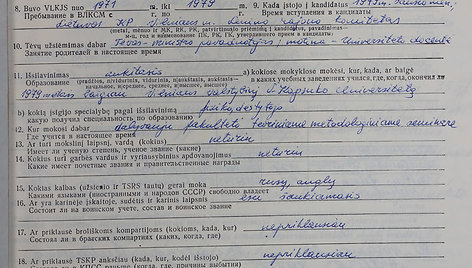 8. Buvo VLKJS nuo 1971 iki 1979 9. Kada įstojo į kandidatus 1979 m.
Пребывание в ВЛКСМ с по Время вступления в кандидаты
Lietuvos KP Vilniaus m. Lenino rajono komitetas
10. Tėvų užsiėmimas dabar Tėvas-ministro pavaduotojas, motina-universiteto docentė
Занятие родителей в настоящее время
11. Išsilavinimas aukštasis a) kokiose mokyklose mokėsi, kur, kada, ar baigė
Образование (pradinis, nevidurinis, vidurinis, njaukštasis, aukštasis — в каких учебных заведениях учился, где, когда, окончил ли
начальное, среднее, н/высшее, высшее)
1979 metais baigiau Vilniaus valstybinį V. Kapsuko Universitetą
b) kokią įsigijo specialybę pagal išsilavinimą
какую получил специальность по образованию
12. Kur mokosi dabar dalyvauju fakulteto teoriniame metodologiniame seminare
Где учится в настоящее время
13. Ar turi mokslinį laipsnį, vardą (kokius) neturiu
Имеет ли ученую степень, ученое звание (какие)
14. Kokius turi garbės vardus ir vyriausybinius apdovanojimus neturiu
Какие имеет почетные звания и правительственные награды
15. Kokias kalbas (užsienio ir TSRS tautų) gerai moka rusų, anglų
Какими языками (иностранными и народов СССР) свободно владеет
16. Ar yra karinėje įskaitoje, sudėtis ir karinis laipsnis esu šaukiamasis
Состоит ли на воинском учете, состав и воинское звание
17. Ar priklausė broliškoms kompartijoms (kokioms, kada, kur) nepriklausiau
Состоял ли в братских компартиях (каких, когда, где)
18. Ar priklausė TSKP anksčiau (kada, kur, kodėl išstojo) nepriklausiau